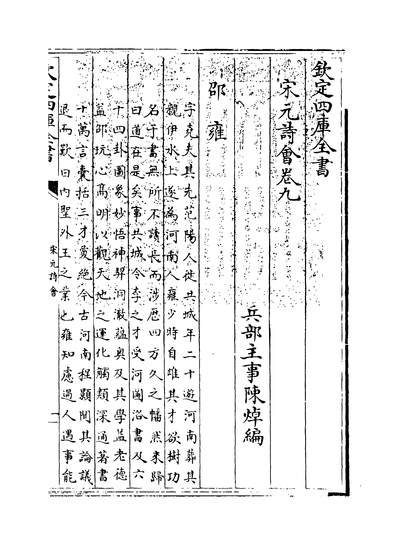 欽定四庫全書
宋元詩會卷九
兵部主事陳焯編
邵雍
字堯夫其先范陽人徙共城年二十遊河南葬其
親伊水上遂為河南人雍少時自雄其才欲樹功
名于書無所不讀長而涉歷四方久之幡然來歸
曰道在是矣事共城令李之才受河圖洛書及六
十四卦圖象妙悟神契洞徹蘊奥及其學益老德
益卲玩心髙明以觀天地之運化觸類深通著書
十萬言囊括三才爰絶今古河南程顥聞其論議
退而歎曰内聖外王之業也雍知慮過人遇事能
宋元詩會
一